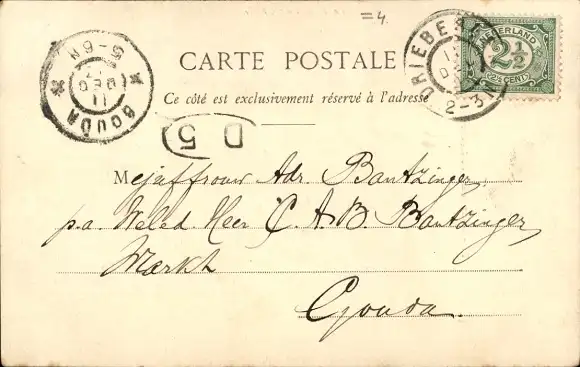 =4.
CARTE POSTALE
Ce côté est exclusivement réservé à l'adresse
GOUDA
5-6N
11
DEC
DRIEBE
2-3
NEDERLAND
2½
(2½ CENT)
D 5
Mejaffrouw Adr. Bantzinger,
p.a. Weled. Heer C. A. B. Bantzinger,
Markt
Gouda.